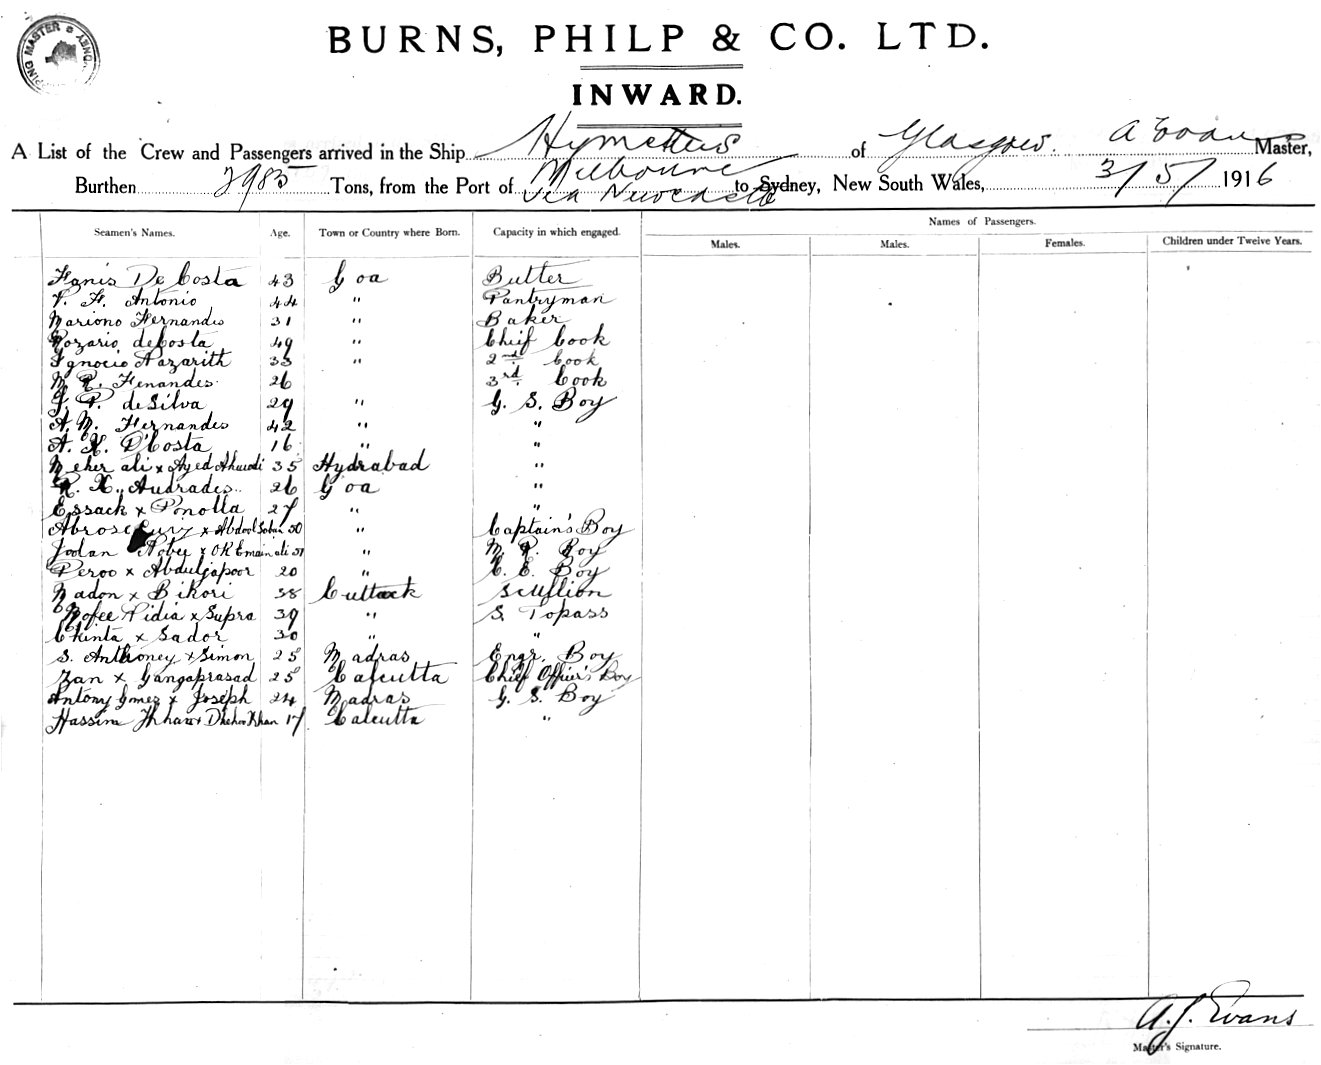 SHIPPING MASTER SYDNEY
BURNS, PHILP & CO. LTD.
INWARD.
A List of the Crew and Passengers arrived in the Ship Hymettus of Glasgow. A Evans Master,
Burthen 2985 Tons, from the Port of Melbourne to Sydney, New South Wales, 3/5/1916
via Newcastle
Names of Passengers.
Seamen's Names. Age. Town or Country where Born. Capacity in which engaged. Males. Males. Females. Children under Twelve Years.
De Costa 43 Goa Butler
F. Antonio 44 " Pantryman
Mariono Fernandes 31 " Baker
Rozario deCosta 49 " Chief Cook
Ignocio Nazarith 33 " 2nd Cook
M. R. Fenandes 26 3rd Cook
P. deSilva 29 " G. S. Boy
A. M. Fernandes 42 " "
A. X. D'Costa 16 " "
Meher ali x 35 Hydrabad "
R. X. Audrades 26 Goa "
Essack x Ponolla 27 " "
x Abdool 50 " Captain's Boy
Jodan x " Boy
Peroo x Abdulgapoor 20 " C. E. Boy
Madon x Bikori 38 Cuttack Scullion
Nidia x Supra 39 " S. Topass
Chinta x Sador 30 " "
S. Anthoney x Simon 25 Madras Engr. Boy
Zan x Gangaprasad 25 Calcutta Chief Officer's Boy
Antony Gmez x Joseph 24 Madras G. S. Boy
Hassim x Khan 17 Calcutta "
A. J. Evans
Master's Signature.